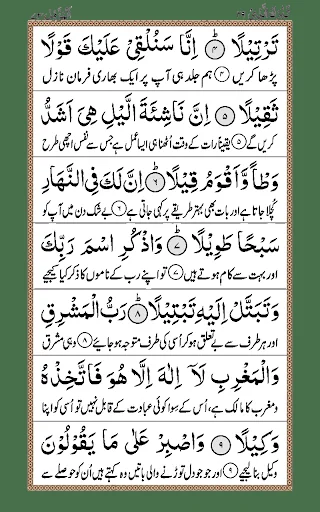 تَرْتِيْلًا ۟ؕ۴ اِنَّا سَنُلْقِيْ عَلَيْكَ قَوْلًا
پڑھا کریں ۴ ہم جلد ہی آپ پر ایک بھاری فرمان نازل
ثَقِيْلًا ۵ اِنَّ نَاشِئَةَ الَّيْلِ هِيَ اَشَدُّ
کریں گے ۵ یقیناً رات کے وقت اُٹھنا ہی ایسا عمل ہے جس سے نفس اچھی طرح
وَطْاً وَّاَقْوَمُ قِيْلًا ؕ۶ اِنَّ لَكَ فِي النَّهَارِ
کچلا جاتا ہے اور بات بھی بہتر طریقے پر کہی جاتی ہے ۶ بے شک دن میں آپ کو
سَبْحًا طَوِيْلًا ؕ۷ وَاذْكُرِ اسْمَ رَبِّكَ
اور بہت سے کام ہوتے ہیں ۷ تو اپنے رب کے ناموں کا ذکر کیا کیجیے
وَتَبَتَّلْ اِلَيْهِ تَبْتِيْلًا ؕ۸ رَبُّ الْمَشْرِقِ
اور ہر طرف سے بے تعلق ہو کر اُسی کی طرف متوجہ ہو جائیے ۸ وہی مشرق
وَالْمَغْرِبِ لَاۤ اِلٰهَ اِلَّا هُوَ فَاتَّخِذْهُ
ومغرب کا مالک ہے، اُس کے سوا کوئی عبادت کے قابل نہیں تو اُسی کو اپنا
وَكِيْلًا ۹ وَاصْبِرْ عَلٰى مَا يَقُوْلُوْنَ
وکیل بنا لیجیے ۹ اور جو جو دل توڑنے والی باتیں وہ کہتے ہیں اُن کو حوصلے سے